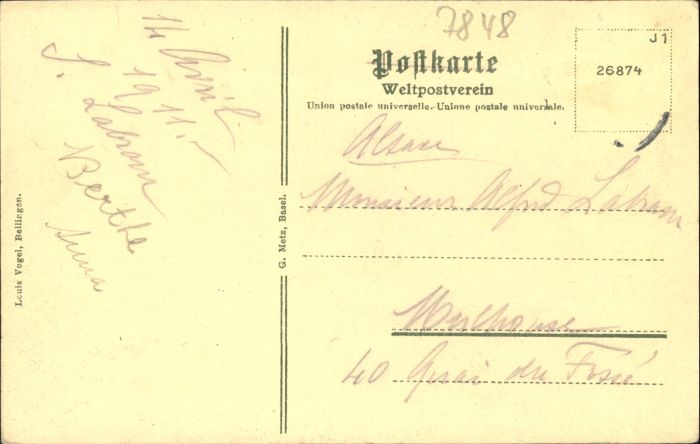 7848
J 1
26874
Postkarte
Weltpostverein
Union postale universelle.-Unione postale universale.
14 Avril
1911.-
J. Labram
Berthe
Anna
Louis Vogel, Bellingen.
G. Metz, Basel.
Alsace
Monsieur Alfred Labram
Mulhouse
40 Quai du Fossé